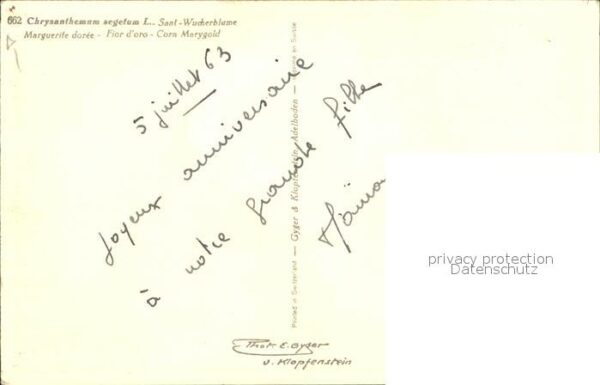 662 Chrysanthemum segetum L. - Saat-Wucherblume
Marguerite dorée - Fior d'oro - Corn Marygold
5 juillet 63
Joyeux anniversaire
à notre grande fille
Printed in Switzerland — Gyger & Klopfenstein, Adelboden — en Suisse
Phot. E. Gyger
u. Klopfenstein
privacy protection
Datenschutz